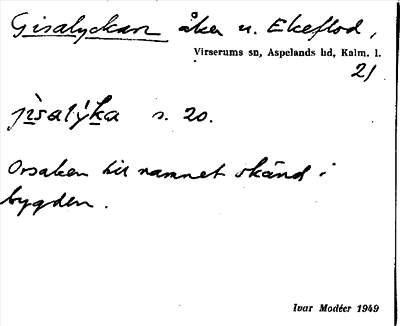 Gisalyckan åker u. Ekeflod,
Virserums sn, Aspelands hd, Kalm. l.
21
jìsalýka s. 20.
Orsaken till namnet okänd i
bygden.
Ivar Modéer 1949